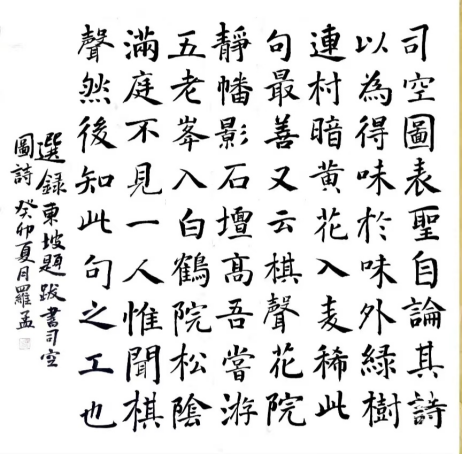 司空圖表聖自論其詩
以為得味於味外綠樹
連村暗黃花入麦稀此
句最善又云棋聲花院
靜幡影石壇高吾嘗游
五老峯入白鶴院松陰
滿庭不見一人惟聞棋
聲然後知此句之工也
選録東坡題跋書司空
圖詩 癸卯夏月羅孟